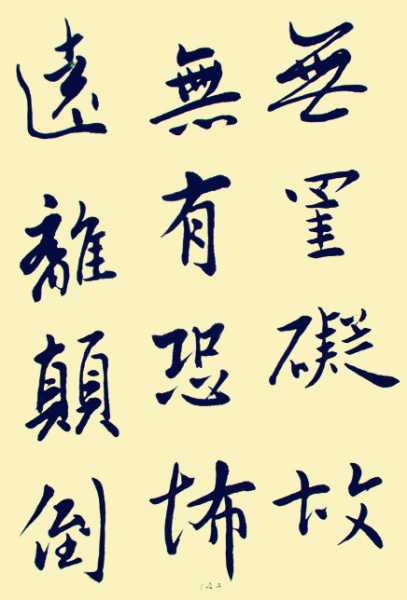 無罣礙故
無有恐怖
遠離顛倒